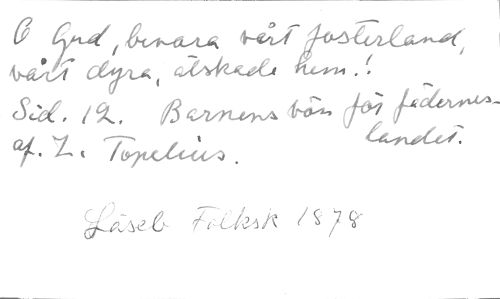 O Gud, bevara vårt fosterland,
vårt dyra, älskade hem.!
Sid. 12. Barnens bön för fädernes-
landet.
af. Z. Topelius.
Läseb Folksk 1878